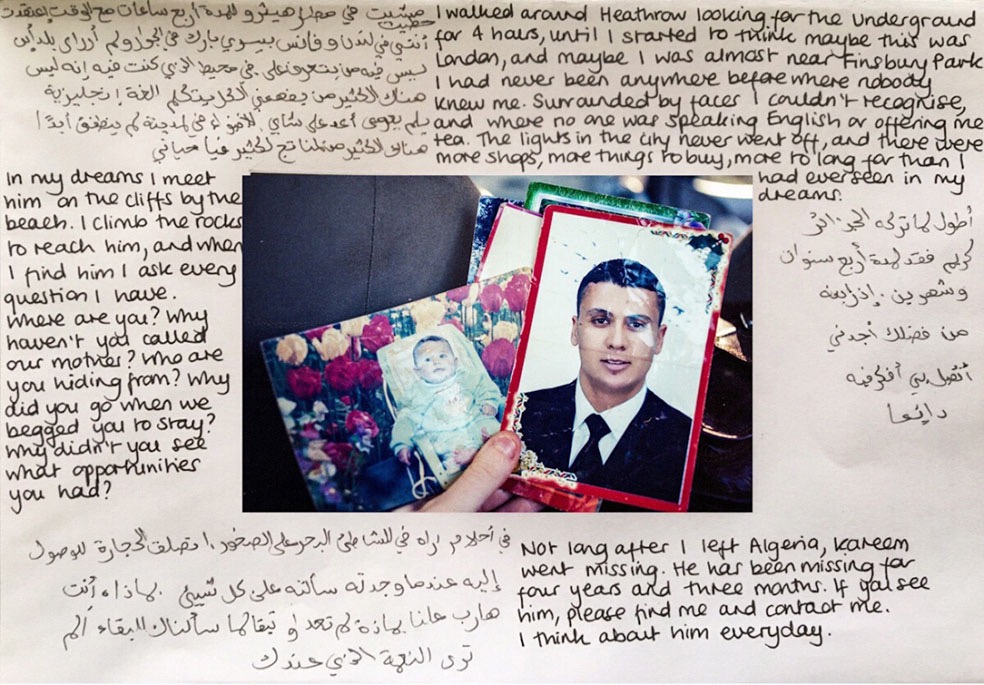 مشيت في مطار هيثرو لمدة أربع ساعات مع الوقت إعتقدت
أنني في لندن و فانس بارك في الجوار لم بلد أين
ليس فيه من يتعرف علي في محيط الذي كنت فيه إنه ليس
هناك الكثير من يفهمني الكل يتكلم الغة إنجليزية
أحد علي شاي. في لمدينة لم أبدا
الكثير حياتي
I walked around Heathrow looking for the underground
for 4 hours, until I started to think maybe this was
London, and maybe I was almost near Finsbury Park
I had never been anywhere before where nobody
knew me. Surrounded by faces I couldn't recognise,
and where no one was speaking English or offering me
tea. The lights in the city never went off, and there were
more shops, more things to buy, more to long for than I
had ever seen in my
dreams.
In my dreams I meet
him on the cliffs by the
beach. I climb the rocks
to reach him, and when
I find him I ask every
question I have.
Where are you? Why
haven't you called
our mother? Who are
you hiding from? Why
did you go when we
begged you to stay?
Why didn't you see
what opportunities
you had?
أطول لما تركه الجزائر
كريم فقد لمدة أربع سنوات
و شهرين.
من فضلك أجدني
أفكر فيه
دائما
في أحلام اراه في الشاطئ البحر على الصخور، اتصلق الحجارة للوصول
إليه عندما وجدته سألته على كل شيئ. لماذا، أنت
هارب علنا لماذة لم تعد و تبقا لما سألناك للبقاء ألم
ترى النعمة الذي عندك
Not long after I left Algeria, Kareem
went missing. He has been missing for
four years and three months. If you see
him, please find me and contact me.
I think about him everyday.